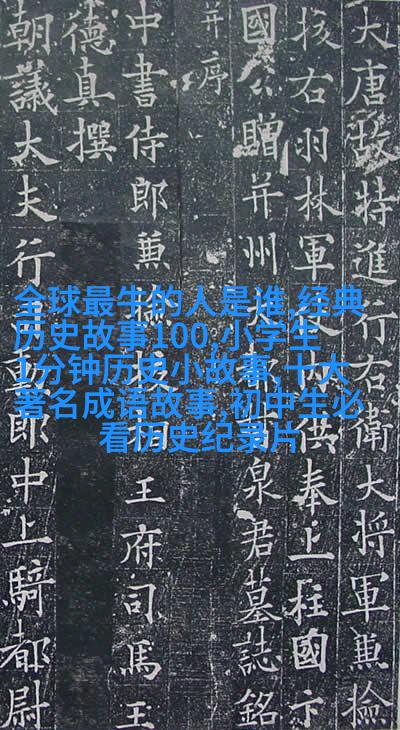 大唐故特進行右衛大將軍兼撿
挍右羽林軍仗內供奉上柱國卞
國公贈并州大都督泉君墓誌銘
并序
中書侍郎兼撿挍相王府司馬王
德真撰
朝議大夫行司勳郎中上騎都尉
全球最牛的人是谁,经典
历史故事100,小学生
1分钟历史小故事,十大
著名成语故事,初中生必
看历史纪录片